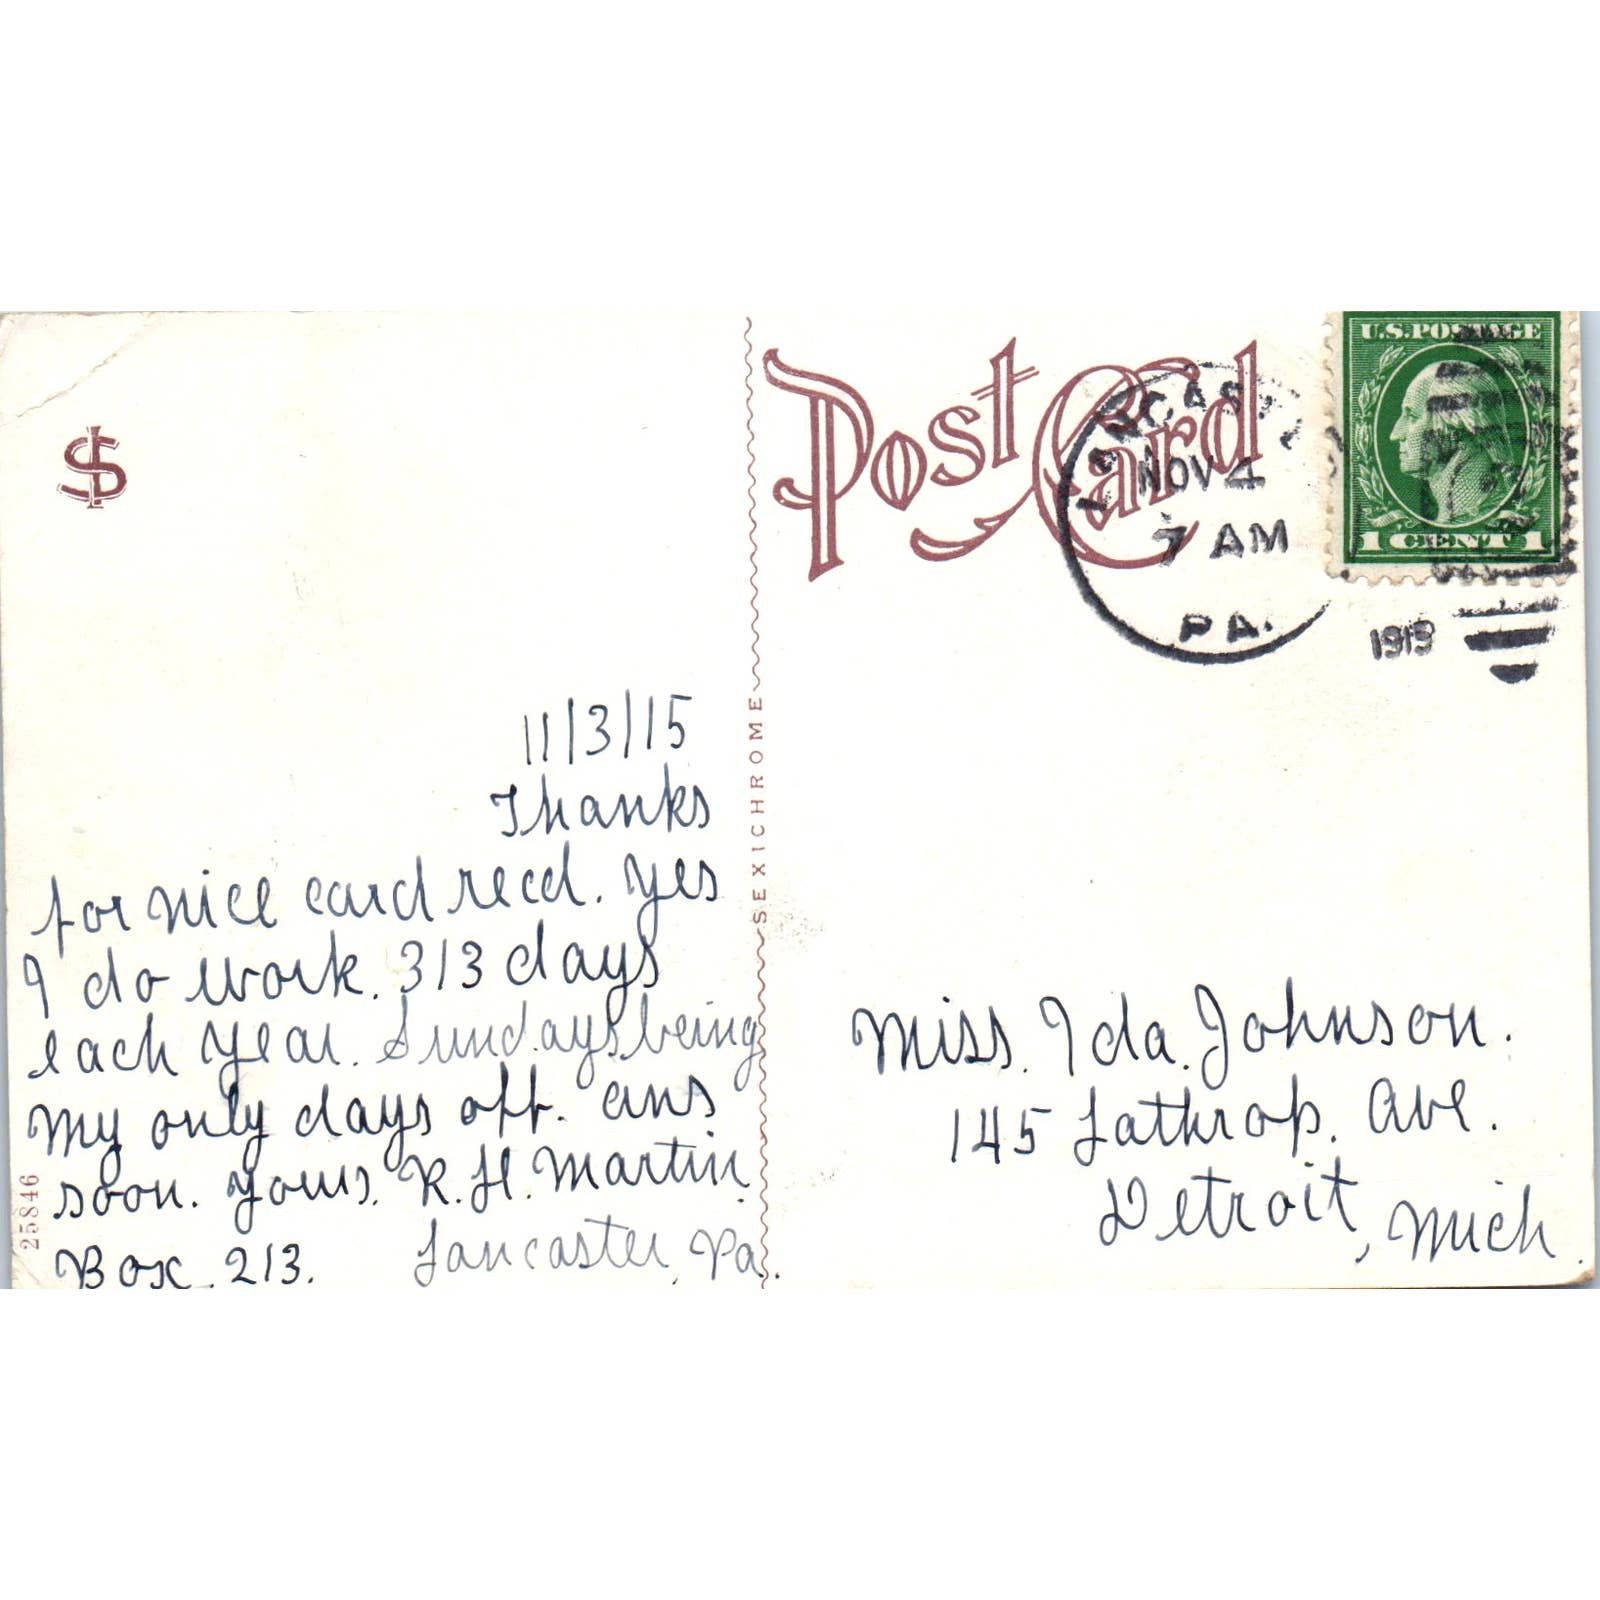 Post Card
U.S. POSTAGE
1 CENT 1
NOV 4
7 AM
PA.
11/3/15
Thanks
for nice card recd. Yes
I do work. 313 days
each year. Sundays being
my only days off. Ans
soon. Yours, R. H. Martin
Box 213. Lancaster, Pa.
25846
SEXICHROME
Miss. Ida. Johnson.
145 Lathrop. Ave.
Detroit, Mich.